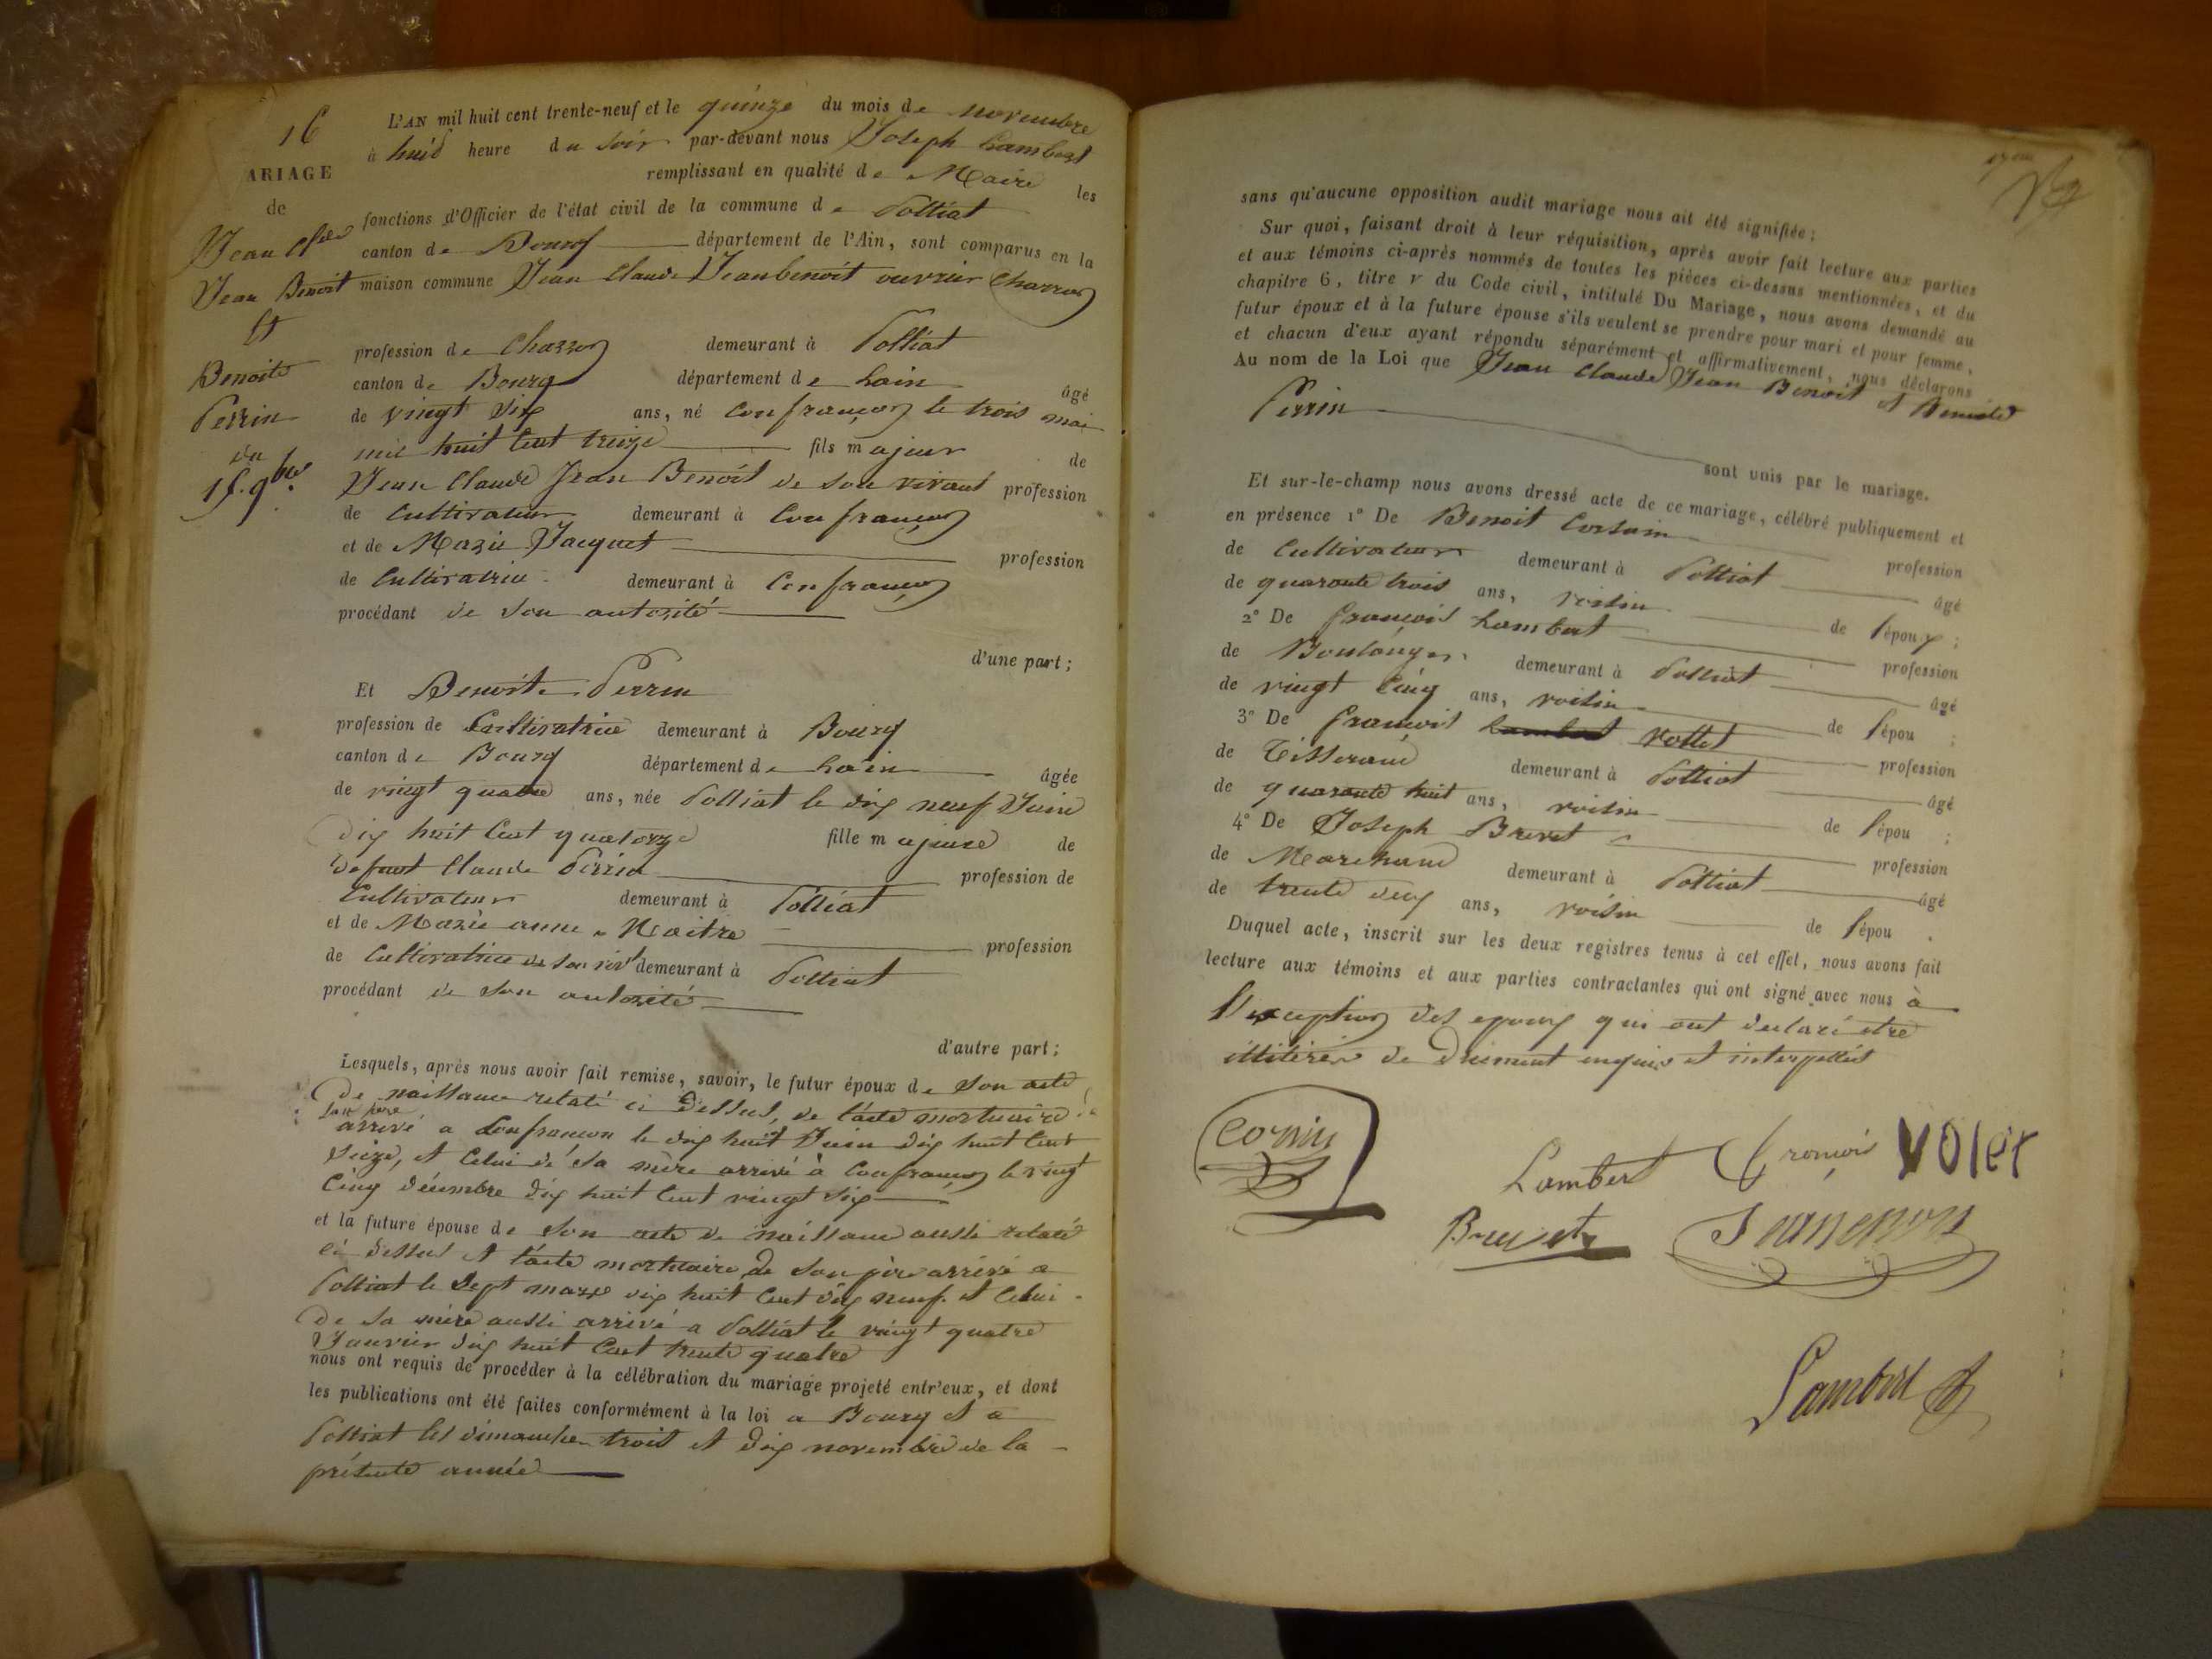 16
ARIAGE
de
Jean Cl^de
Jean Benoit
et
Benoite
Perrin
du
15. 9^bre.
L'AN mil huit cent trente-neuf et le quinze du mois de novembre
à huit heure du soir par-devant nous Joseph Lambert
remplissant en qualité de Maire les
fonctions d'Officier de l'état civil de la commune de Polliat
canton de Bourg département de l'Ain, sont comparus en la
maison commune Jean Claude Jeanbenoit ouvrier Charron
profession de Charron demeurant à Polliat
canton de Bourg département de Lain âgé
de vingt six ans, né Confrançon le trois mai
mil huit cent treize fils majeur de
Jean Claude Jean Benoit de son vivant profession
de Cultivateur demeurant à Confrançon
et de Marie Jacquet profession
de Cultivatrice demeurant à Confrançon
procédant de son autorité
d'une part;
Et Benoite Perrin
profession de Cultivatrice demeurant à Bourg
canton de Bourg département de Lain âgée
de vingt quatre ans, née Polliat le dix neuf Juin
dix huit Cent quatorze fille majeure de
defunt Claude Perrin profession de
Cultivateur demeurant à Polliat
et de Marie anne Maitre profession
de Cultivatrice de son viv^t demeurant à Polliat
procédant de son autorité
d'autre part;
Lesquels, après nous avoir fait remise, savoir, le futur époux de son acte
de naissance relaté ci dessus, de l'acte mortuaire de
son père
arrivé a Confrançon le dix huit Juin dix huit Cent
seize, et Celui de sa mère arrivé à Confrançon le vingt
Cinq décembre dix huit Cent vingt six
et la future épouse de son acte de naissance aussi relaté
ci dessus et l'acte mortuaire de son père arrivé a
Polliat le Sept mars dix huit Cent dix neuf. et Celui
de sa mère aussi arrivé a Polliat le vingt quatre
Janvier dix huit Cent trente quatre
nous ont requis de procéder à la célébration du mariage projeté entr'eux, et dont
les publications ont été faites conformément à la loi a Bourg et a
Polliat les dimanche trois et dix novembre de la
présente année
sans qu'aucune opposition audit mariage nous ait été signifiée;
Sur quoi, faisant droit à leur réquisition, après avoir fait lecture aux parties
et aux témoins ci-après nommés de toutes les pièces ci-dessus mentionnées, et du
chapitre 6, titre v du Code civil, intitulé Du Mariage, nous avons demandé au
futur époux et à la future épouse s'ils veulent se prendre pour mari et pour femme,
et chacun d'eux ayant répondu séparément et affirmativement, nous déclarons
Au nom de la Loi que Jean Claude Jean Benoit et Benoite
Perrin
sont unis par le mariage.
Et sur-le-champ nous avons dressé acte de ce mariage, célébré publiquement et
en présence 1° De Benoit Corsain profession
de Cultivateur demeurant à Polliat âgé
de quarante trois ans, voisin de l'époux;
2° De françois Lambert profession
de Boulanger demeurant à Polliat âgé
de vingt Cinq ans, voisin de l'épou;
3° De françois Vollet profession
de Tisserand demeurant à Polliat âgé
de quarante huit ans, voisin de l'épou;
4° De Joseph Brevet profession
de Marchand demeurant à Polliat âgé
de trente deux ans, voisin de l'épou.
Duquel acte, inscrit sur les deux registres tenus à cet effet, nous avons fait
lecture aux témoins et aux parties contractantes qui ont signé avec nous à
l'exception des epoux qui ont declaré etre
illitérés de dument enquis et interpellés
Lambert françois volet
Brevet
Lambert